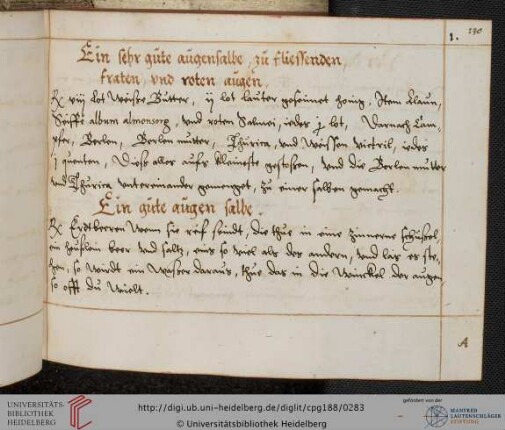 190
1.
Ein sehr güte augensalbe, zü fliessenden,
fraten, vnd roten augen.
Rx viij lot Meÿsche Butter, ij lot lauter geseimet honig, Item Alaun,
album vnd roten iedes j lot, Darnach Cam-
pfer, Berlen, Berlen mutter, Thutica, vnd weissen victril, iedes
j quenten, Diese alles aufs kleinste gestossen, vnd die Berlen mutter
vnd Thutica vntereinander gemenget, zu einer salben gemacht.
Ein güte augen salbe.
Rx Erdtberen wenn sie reif seindt, die thue in eine zinnerne schüssel,
ein heuflein beer vnd saltz, eins so viel als des andern, vnd las es ste-
hen, so wirdt ein Wasser daraus, thue das in die Winckel der augen,
so offt du wilt.
A
UNIVERSITÄTS-
BIBLIOTHEK
HEIDELBERG
http://digi.ub.uni-heidelberg.de/diglit/cpg188/0283
© Universitätsbibliothek Heidelberg
gefördert von der
MANFRED
LAUTENSCHLÄGER
STIFTUNG